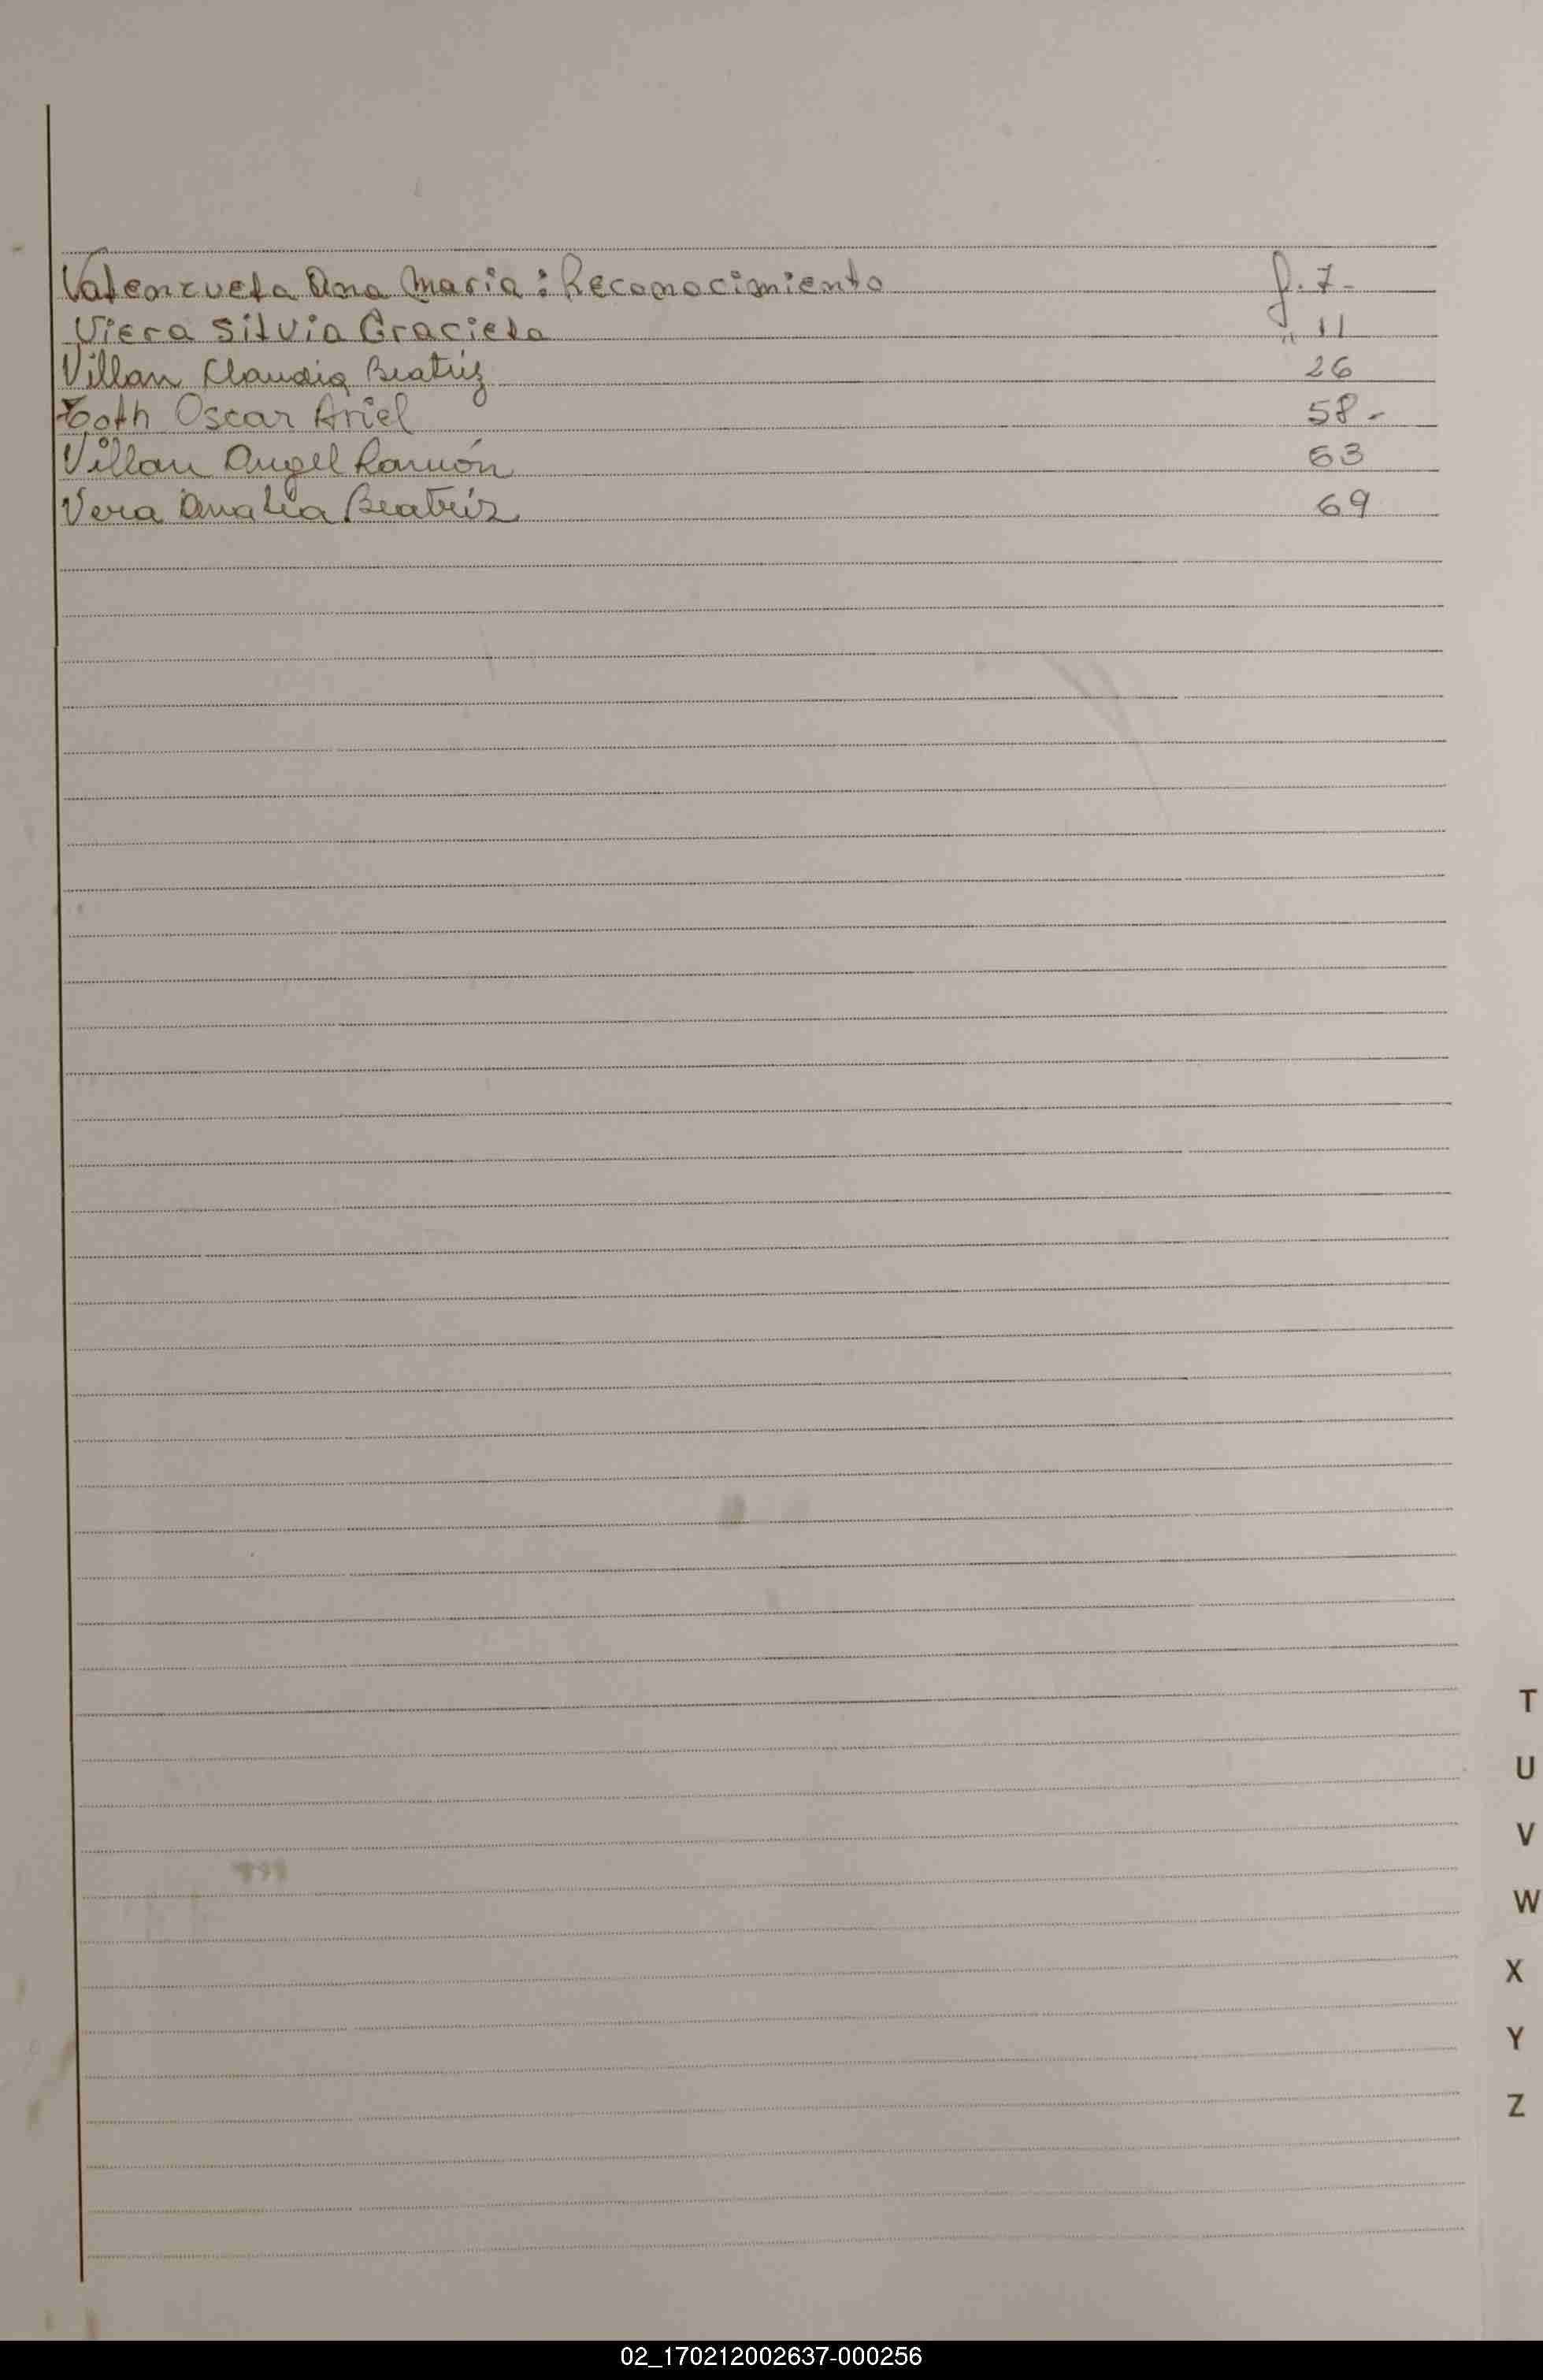 Valenzuela Ana Maria: Reconocimiento f. 7-
Viera Silvia Graciela " 11
Villan Claudia Beatriz 26
Toth Oscar Ariel 58-
Villan Angel Ramón 63
Vera Analia Beatriz 69
T
U
V
W
X
Y
Z
02_170212002637-000256